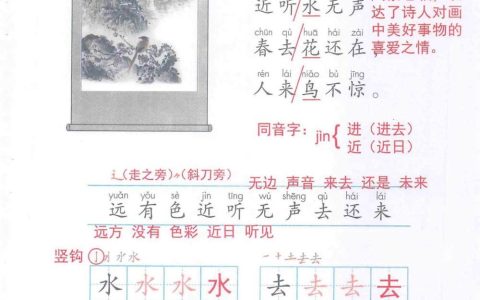 近听水无声，
达了诗人对画
中美好事物的
喜爱之情。
chūn qù huā hái zài
春去花还在，
rén lái niǎo bù jīng
人来鸟不惊。
同音字：jìn 进（进去）
近（近日）
辶(走之旁) (斜刀旁)
无边 声音 来去 还是 未来
yuǎn yǒu sè jìn tīng wú shēng qù hái lái
远有色近听无声去还来
远方 没有 色彩 近日 听见
竖钩
水水水水 去去去去